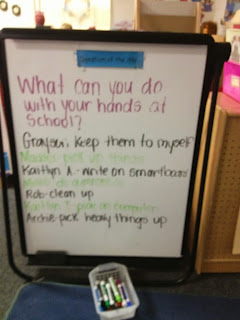 Question of the day
What can you do
with your hands at
school?
Grayson: Keep them to myself
pick up things
Kaitlyn A.- write on smartboard
Rob-clean up
Kaitlyn S-play on computer
Archie-pick heavy things up